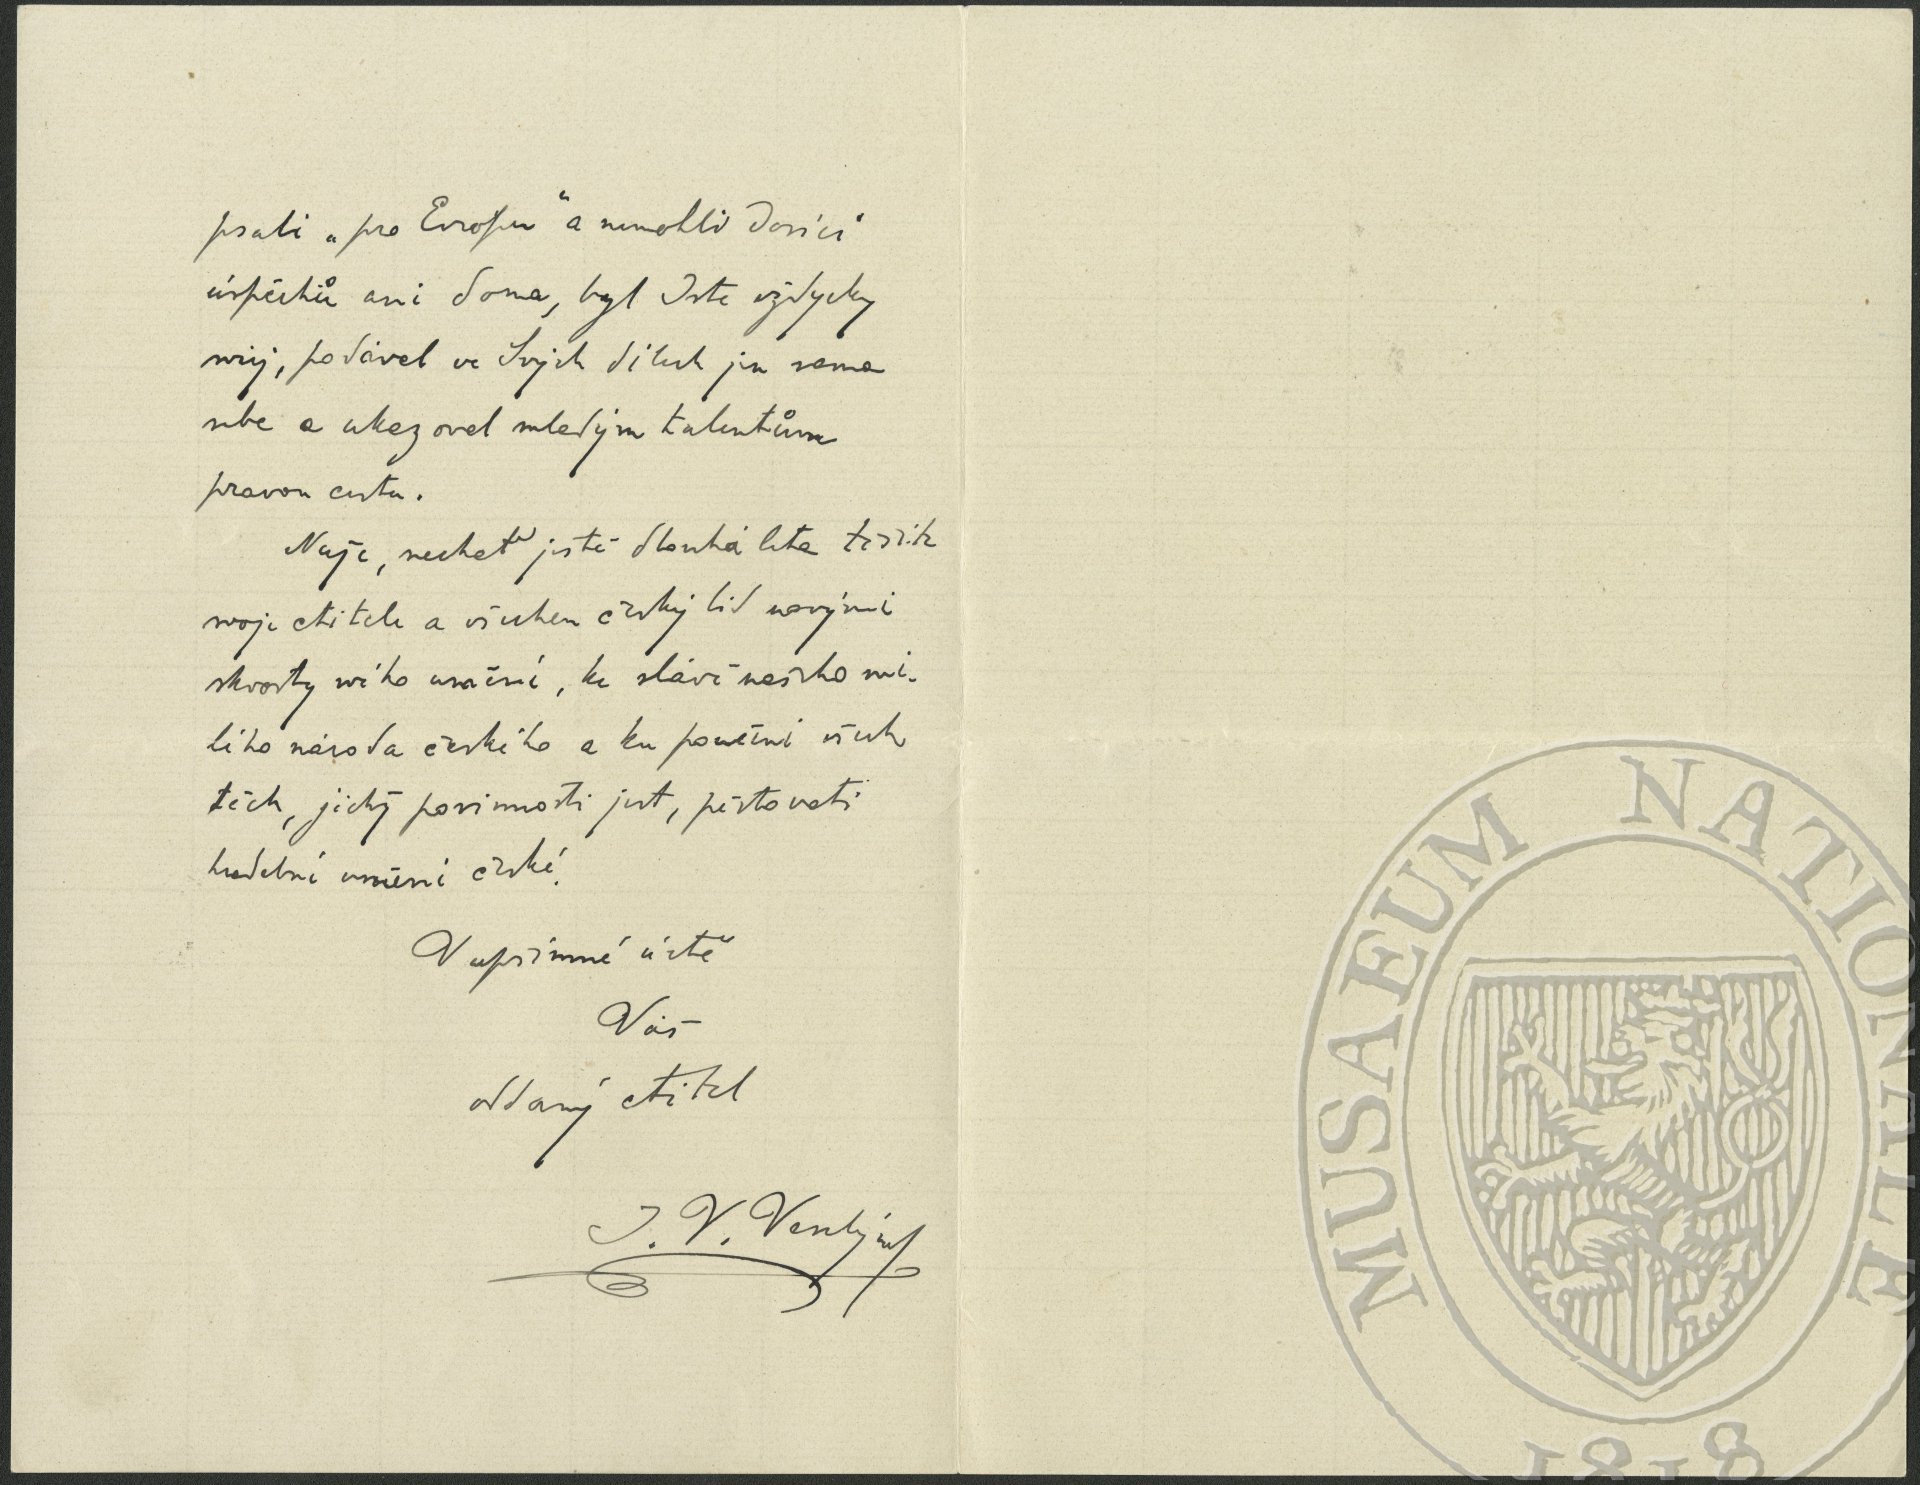 psali „pro Evropu“ a nemohli docíliti
úspěchů ani doma, byl Jste vždycky
svůj, podával ve Svých dílech jen sama
sebe a ukazoval mladým talentům
pravou cestu.
Nuže, nechať ještě dlouhá léta těšíte
svoje ctitele a všechen český lid novými
skvosty svého umění, ke slávě našeho mi-
lého národa českého a ku poučení všech
těch, jichž povinností jest, pěstovati
hudební umění české.
V upřímné úctě
Váš
oddaný ctitel
J. V.
MUSAEUM NATIONALE
1818